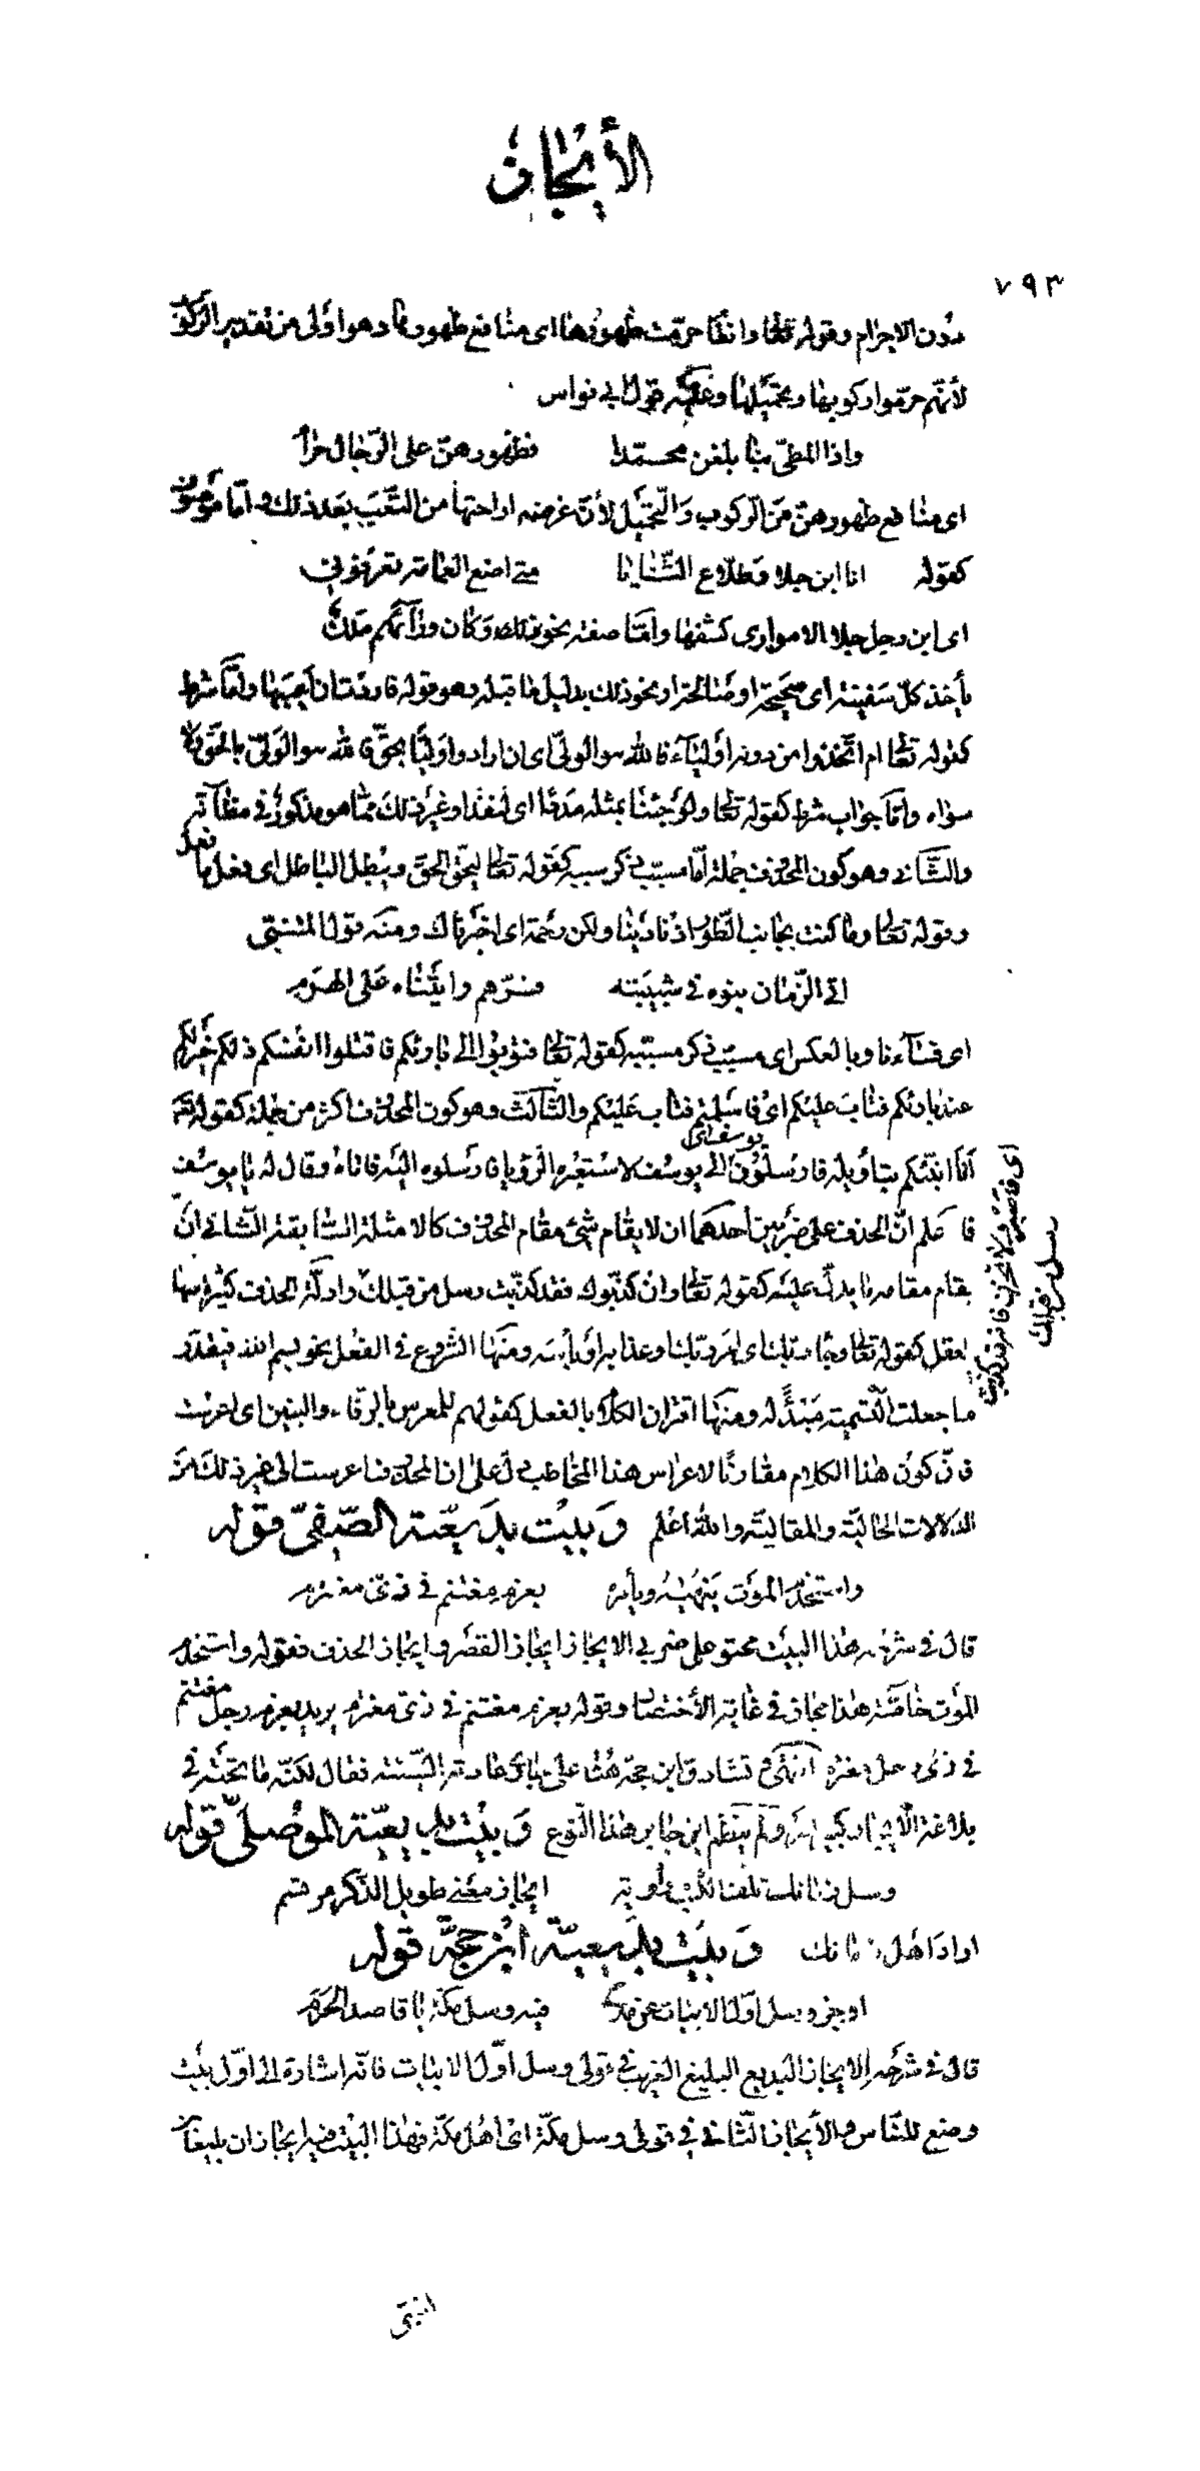 الأيجاز
٧٩٣
دون الاجرام وقوله تعالى وانعام حرّمت ظهورها اى منافع ظهورها وهو أولى من تقدير الركوب
لأنهم حرّموا ركوبها وتحميلها وعليه قول ابى نواس
واذا المطىّ بنا بلغن محمدا فظهورهنّ على الرّجال حرام
اى منافع ظهورهنّ من الركوب والتحميل لأنّ غرضه اراحتها من التّعب بعد ذلك وامّا موصوف
كقوله انا ابن جلا وطلاّع الثّنايا متى اضع العمامة تعرفونى
اى ابن رجل جلا الامور اى كشفها وامّا صفة نحو قوله وكان ورآئهم ملك
يأخذ كلّ سفينة اى صحيحة او صالحة او نحو ذلك بدليل ما قبله وهو قوله فاردت ان اعيبها وامّا شرط
كقوله تعالى ام اتّخذوا من دونه أولياء فالله هو الولىّ اى ان ارادوا وليّا بحقّ فالله هو الولىّ بالحقّ لا
سواه وامّا جواب شرط كقوله تعالى ولو جئنا بمثله مددا اى لنفد او غير ذلك ممّا هو مذكور فى مظآنّه
والثّانى وهو كون المحذوف جملة امّا مسبّب ذكر سببه كقوله تعالى ليحقّ الحقّ ويبطل الباطل اى فعل ما فعل
وقوله تعالى وما كنت بجانب الطّور اذ نادينا ولكن رحمة اى اخترناك ومنه قول المتنبّى
اتى الزّمان بنوه فى شبيبته فسرّهم واتيناه على الهرم
اى فسآءنا وبالعكس اى سبب ذكر مسبّبه كقوله تعالى فتوبوا الى بارئكم فاقتلوا انفسكم ذلكم خير لكم
عند بارئكم فتاب عليكم اى فامتثلتم فتاب عليكم والثّالث وهو كون المحذوف اكثر من جملة كقوله تعالى
أنا انبّئكم بتأويله فارسلون يوسف اى الى يوسف لاستعبره الرؤيا فارسلوه اليه فاتاه وقال له يا يوسف
فاعلم انّ الحذف على ضربين احدهما ان لا يقام شىء مقام المحذوف كالامثلة السّابقة الثّانى ان
يقام مقامه ما يدلّ عليه كقوله تعالى وان كذّبوك فقد كذّبت رسل من قبلك وادلّة الحذف كثيرة منها
اى فاصبر ولا تحزن فانه قد كذبت
رسل من قبلك
العقل كقوله تعالى وجاء ربّك اى امر ربّك او عذابه او بأسه ومنها الشّروع فى الفعل نحو بسم الله فيقدّر
ما جعلت التّسمية مبدأ له ومنها اقتران الكلام بالفعل كقولهم للمعرس بالرفاء والبنين اى اعرست
فانّ كون هذا الكلام مقارنًا لاعراس هذا المخاطب دلّ على ان المحذوف اعرست الى غير ذلك من
الدّلالات الحاليّة والمقاليّة والله اعلم وبيت بديعيّة الصّفىّ قوله
واستخدم الموت ينهاه ويأمره بعزم مغتنم فى زىّ مغترم
قال فى شرحه هذا البيت محتو على ضربى الايجاز ايجاز القصر وايجاز الحذف فقوله واستخدم
الموت خاصّة هذا ايجاز فى غاية الأختصار وقوله بعزم مغتنم فى زىّ مغترم يريد بعزم رجل مغتنم
فى زىّ رجل مغترم انتهى وتشادق ابن حجّة هنا على عادته السّيّئة فقال لكنّه ما تحته فى
بلاغة الايجاز كبير امر ولم ينظم ابن جابر هذا النّوع وبيت بديعيّة الموصلىّ قوله
وسل زمانك تلف ايجاز معنى طويل الذّكر مرتسم
اراد اهل زمانك وبيت بديعيّة ابن حجّة قوله
اوجز وسل اوّل الابيات عن فيه وسل مكّة يا قاصد الحرم
قال فى شرحه الايجاز البديع البليغ الغريب فى قولى وسل اوّل الابيات فانّه اشارة الى اوّل بيت
وضع للنّاس والأيجاز الثّانى فى قولى وسل مكّة اى اهل مكّة فهذا البيت فيه ايجازان بليغان
انتهى